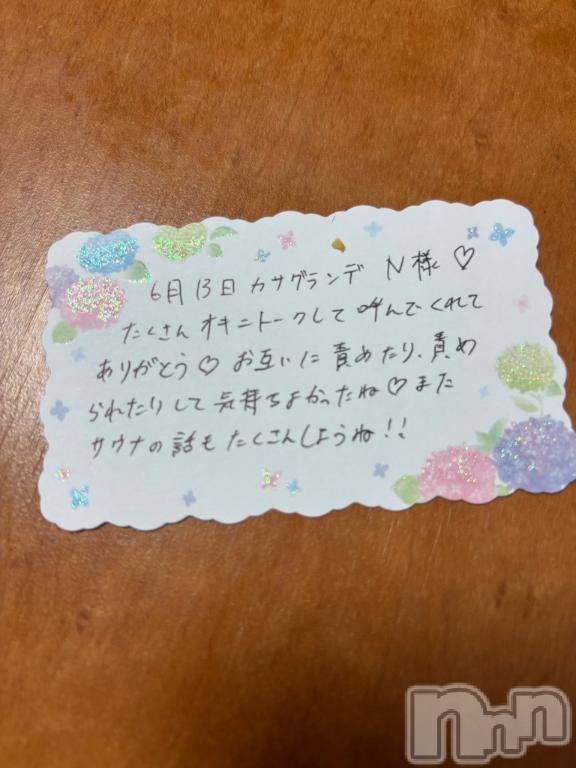 6月13日 カサグランデ N様♡
たくさん オキニトークして 呼んでくれて
ありがとう♡ お互いに 責めたり、責め
られたりして 気持ちよかったね♡ また
サウナの話も たくさんしようね!!
nnn